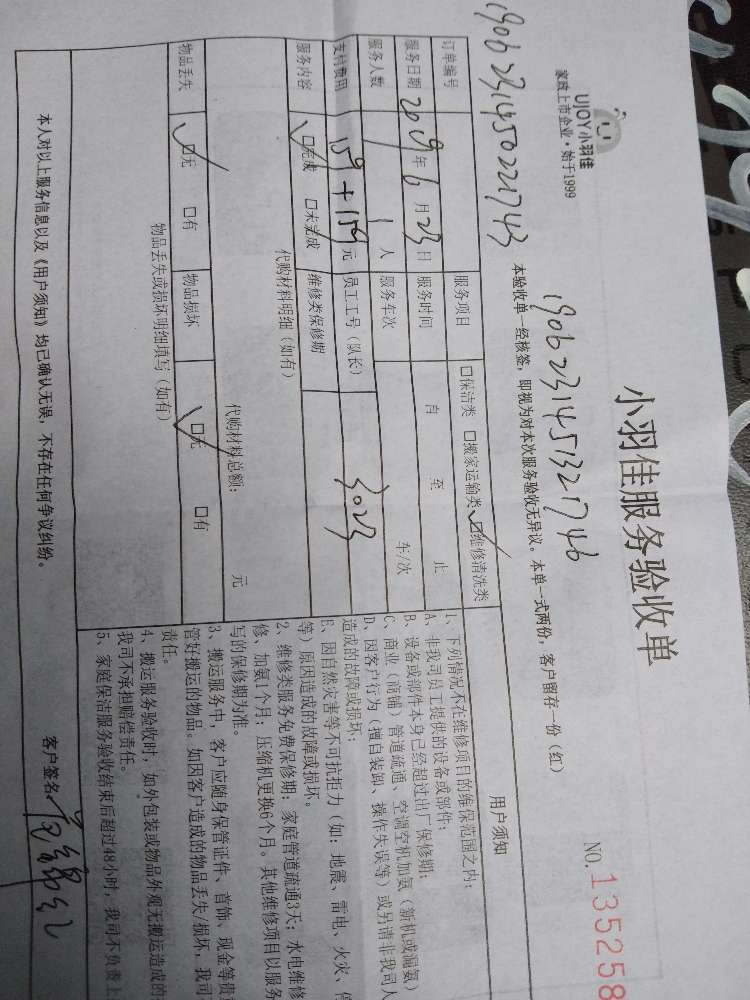 UJOY小羽佳
家政上市企业·始于1999
小羽佳服务验收单
NO.135258
190623145132 1746
本验收单一经核签，即视为对本次服务验收无异议。本单一式两份，客户留存一份（红）
190623145022 1743
订单编号
服务项目 □保洁类 □搬家运输类 ☑维修清洗类
服务日期 2019年6月23日 服务时间 自 至 止
服务人数 1人 服务车次 车/次
支付费用 159+159元 员工工号（队长） 3023
服务内容 ☑完成 □未完成 维修类保修期
代购材料明细（如有）
代购材料总额： 元
物品丢失 ☑无 □有 物品损坏 ☑无 □有
物品丢失或损坏明细填写（如有）
本人对以上服务信息以及《用户须知》均已确认无误，不存在任何争议纠纷。
客户签名：
用户须知
1、下列情况不在维修项目的维保范围之内：
A、非我司员工提供的设备或部件；
B、设备或部件本身已经超过出厂保修期；
C、商业（商铺）管道疏通、空调空机加氨（新机或漏氨）
D、因客户行为（擅自装卸、操作失误等）或另请非我司人
造成的故障或损坏；
E、因自然灾害等不可抗拒力（如：地震、雷电、火灾、
等）原因造成的故障或损坏。
2、维修类服务免费保修期：家庭管道疏通3天；水电维修
修、加氨1个月；压缩机更换6个月。其他维修项目以服务
写的保修期为准。
3、搬运服务中，客户应随身保管证件、首饰、现金等贵
管好搬运的物品。如因客户造成的物品丢失/损坏，我司
责任。
4、搬运服务验收时，如外包装或物品外观无搬运造成的
我司不承担赔偿责任。
5、家庭保洁服务验收结束后超过48小时，我司不负责上